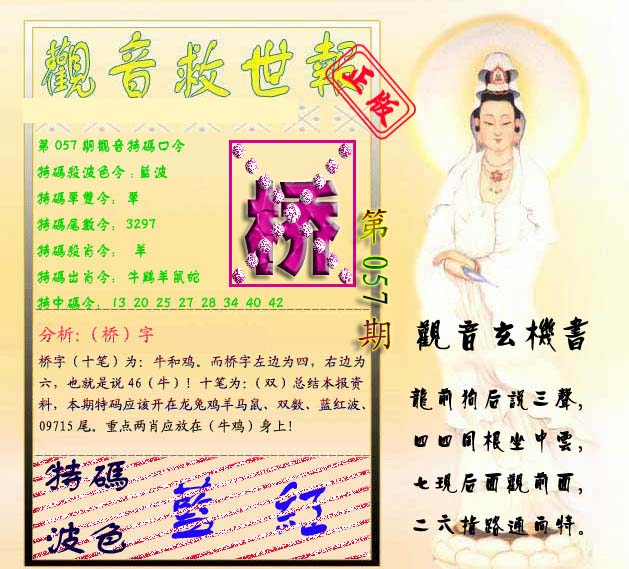 觀音救世報
正版
第057期觀音特碼口令
特碼殺波色令：藍波
特碼單雙令： 單
特碼尾數令： 3297
特碼殺肖令： 羊
特碼出肖令： 牛鷄羊鼠蛇
特中碼令： 13 20 25 27 28 34 40 42
桥
第057期
分析:（桥）字
桥字（十笔）为：牛和鸡。而桥字左边为四，右边为
六，也就是说46（牛）！十笔为：（双）总结本报资
料，本期特码应该开在龙兔鸡羊马鼠、双数、蓝红波、
09715尾。重点两肖应放在（牛鸡）身上！
特碼
波色
藍 紅
觀音玄機書
龍前狗后説三聲，
四四同根坐中雲，
七現后面觀前面，
二六指路通而特。